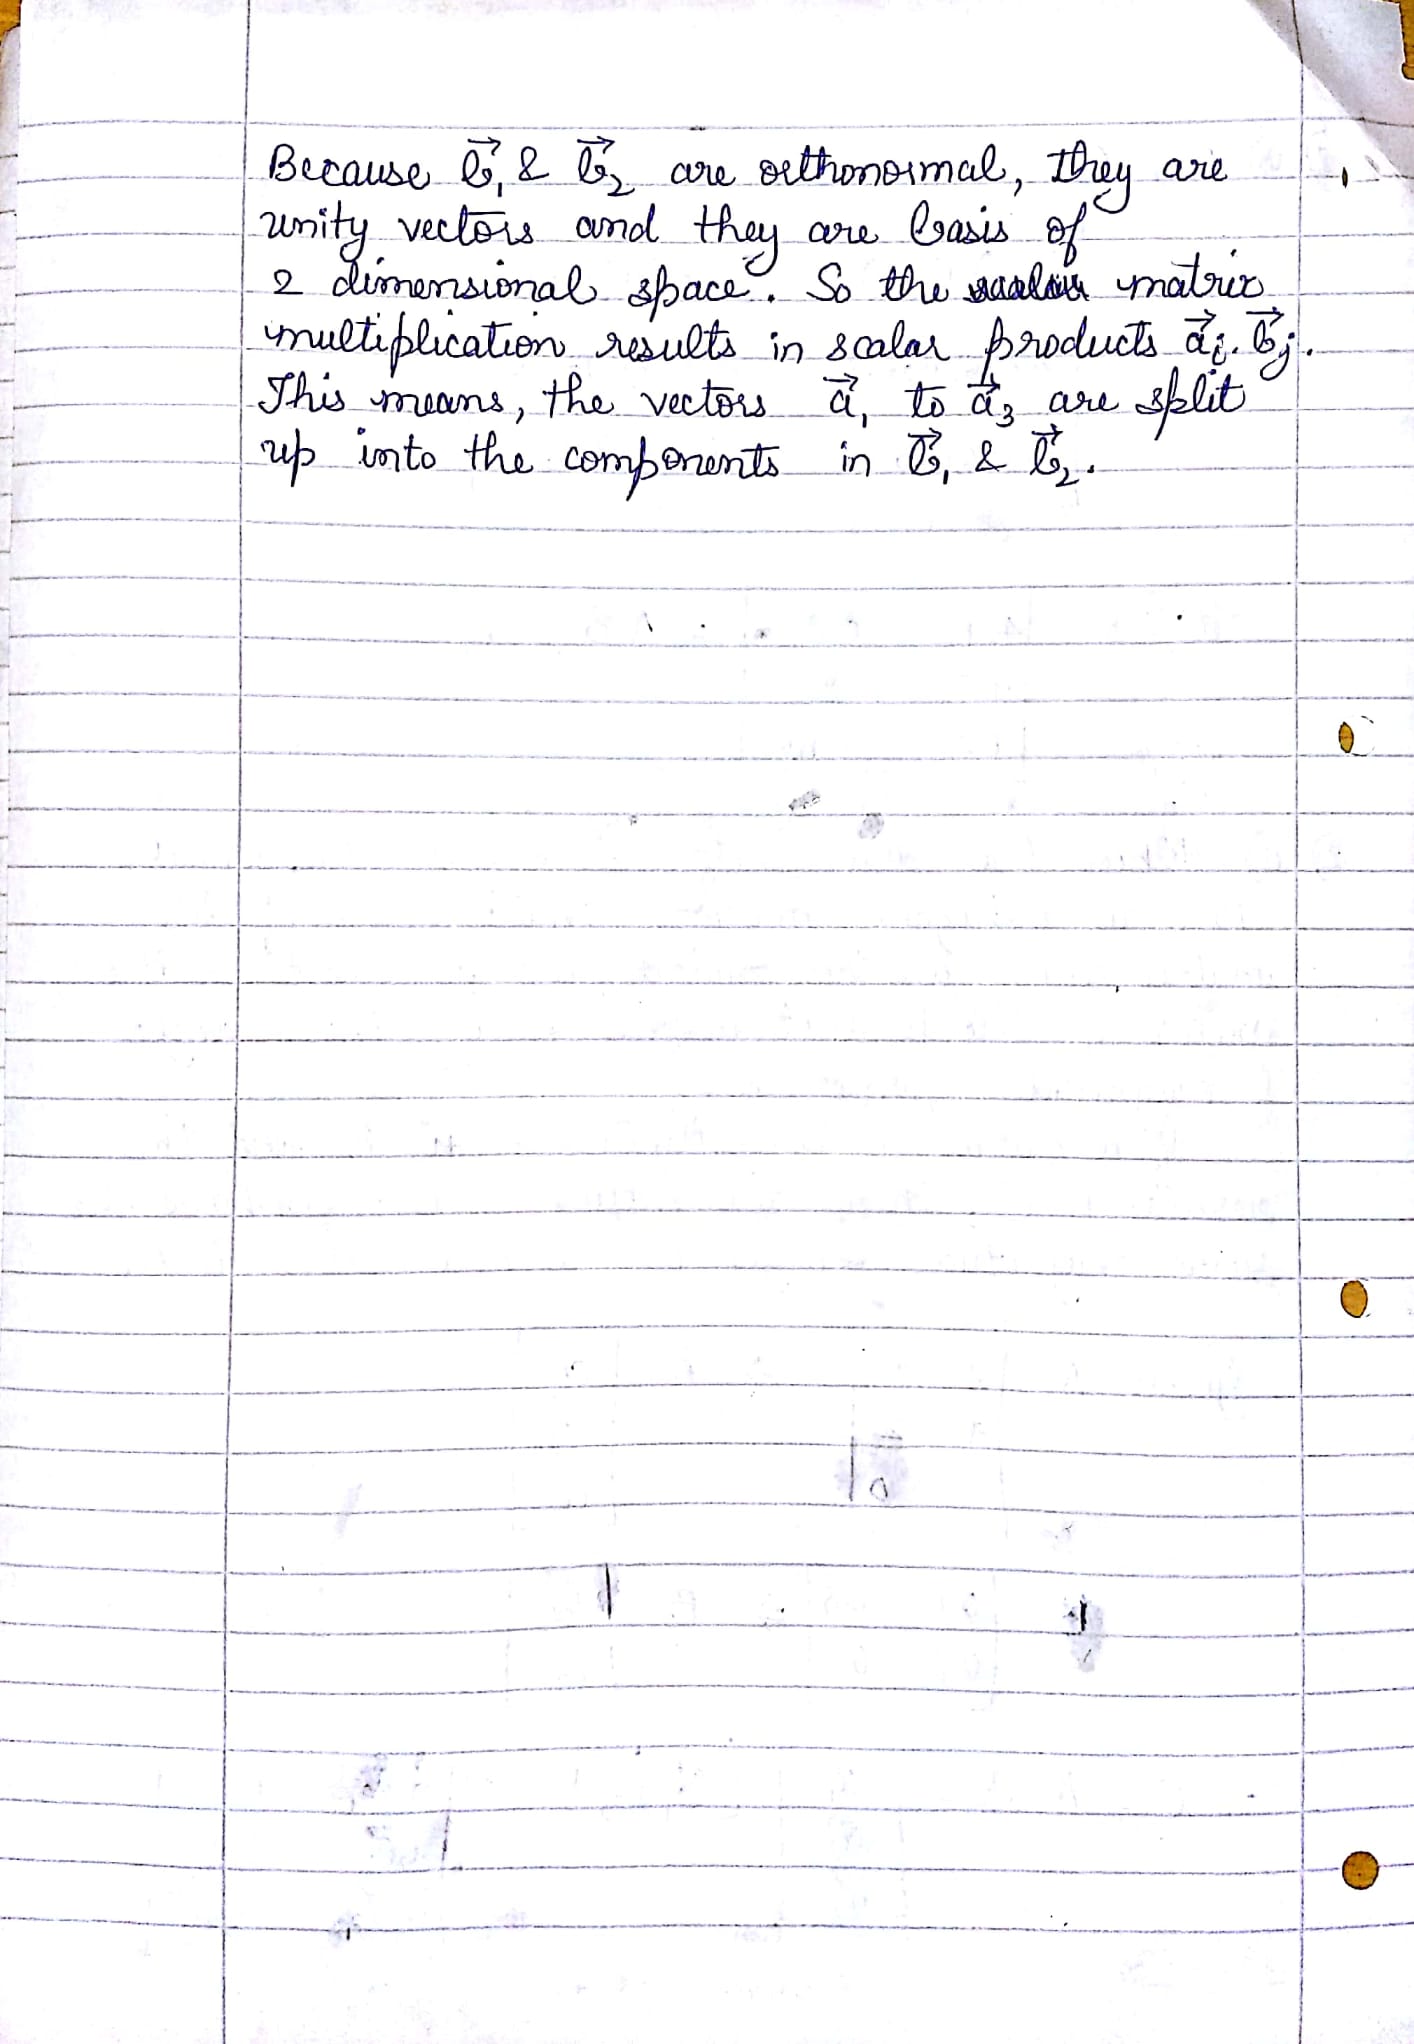 Because b⃗₁ & b⃗₂ are orthonormal, they are
unity vectors and they are basis of
2 dimensional space. So the matrix
multiplication results in scalar products a⃗ᵢ. b⃗ⱼ.
This means, the vectors a⃗₁ to a⃗₃ are split
up into the components in b⃗₁ & b⃗₂.